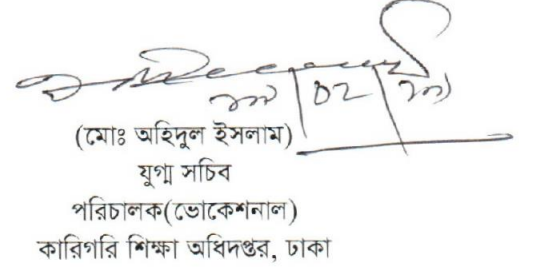 (মোঃ অহিদুল ইসলাম)
যুগ্ম সচিব
পরিচালক(ভোকেশনাল)
কারিগরি শিক্ষা অধিদপ্তর, ঢাকা